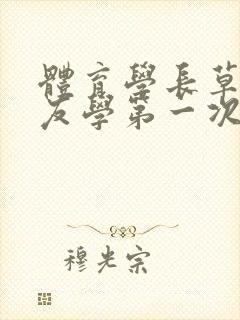 體育學長草
友學第一次
穆光宗